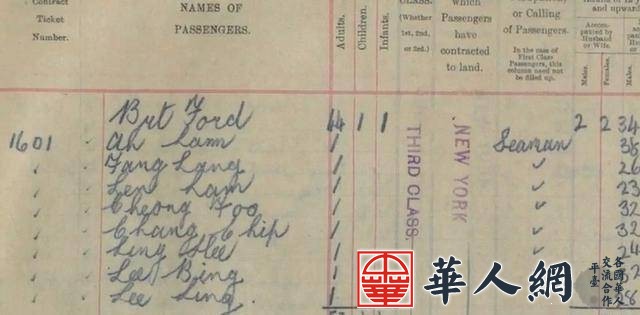 Contract Ticket Number.
NAMES OF PASSENGERS.
Adults.
Children.
Infants.
CLASS.
(Whether 1st, 2nd, or 3rd.)
which Passengers have contracted to land.
or Calling of Passengers.
In the case of First Class Passengers, this column need not be filled up.
and upward
Accompanied by Husband or Wife.
Males.
Females.
Males.
Brt Ford 44 1 1 2 2 34
1601 Ah Lam 1 Seaman 38
Fang Lang 1 26
Len Lam 1 23
Cheong Foo 1 32
Chang Chip 1 32
Ling Hee 1 24
Lee Bing 1 32
Lee Ling. 1
THIRD CLASS.
NEW YORK
華人網
各國華人
交流合作
平臺